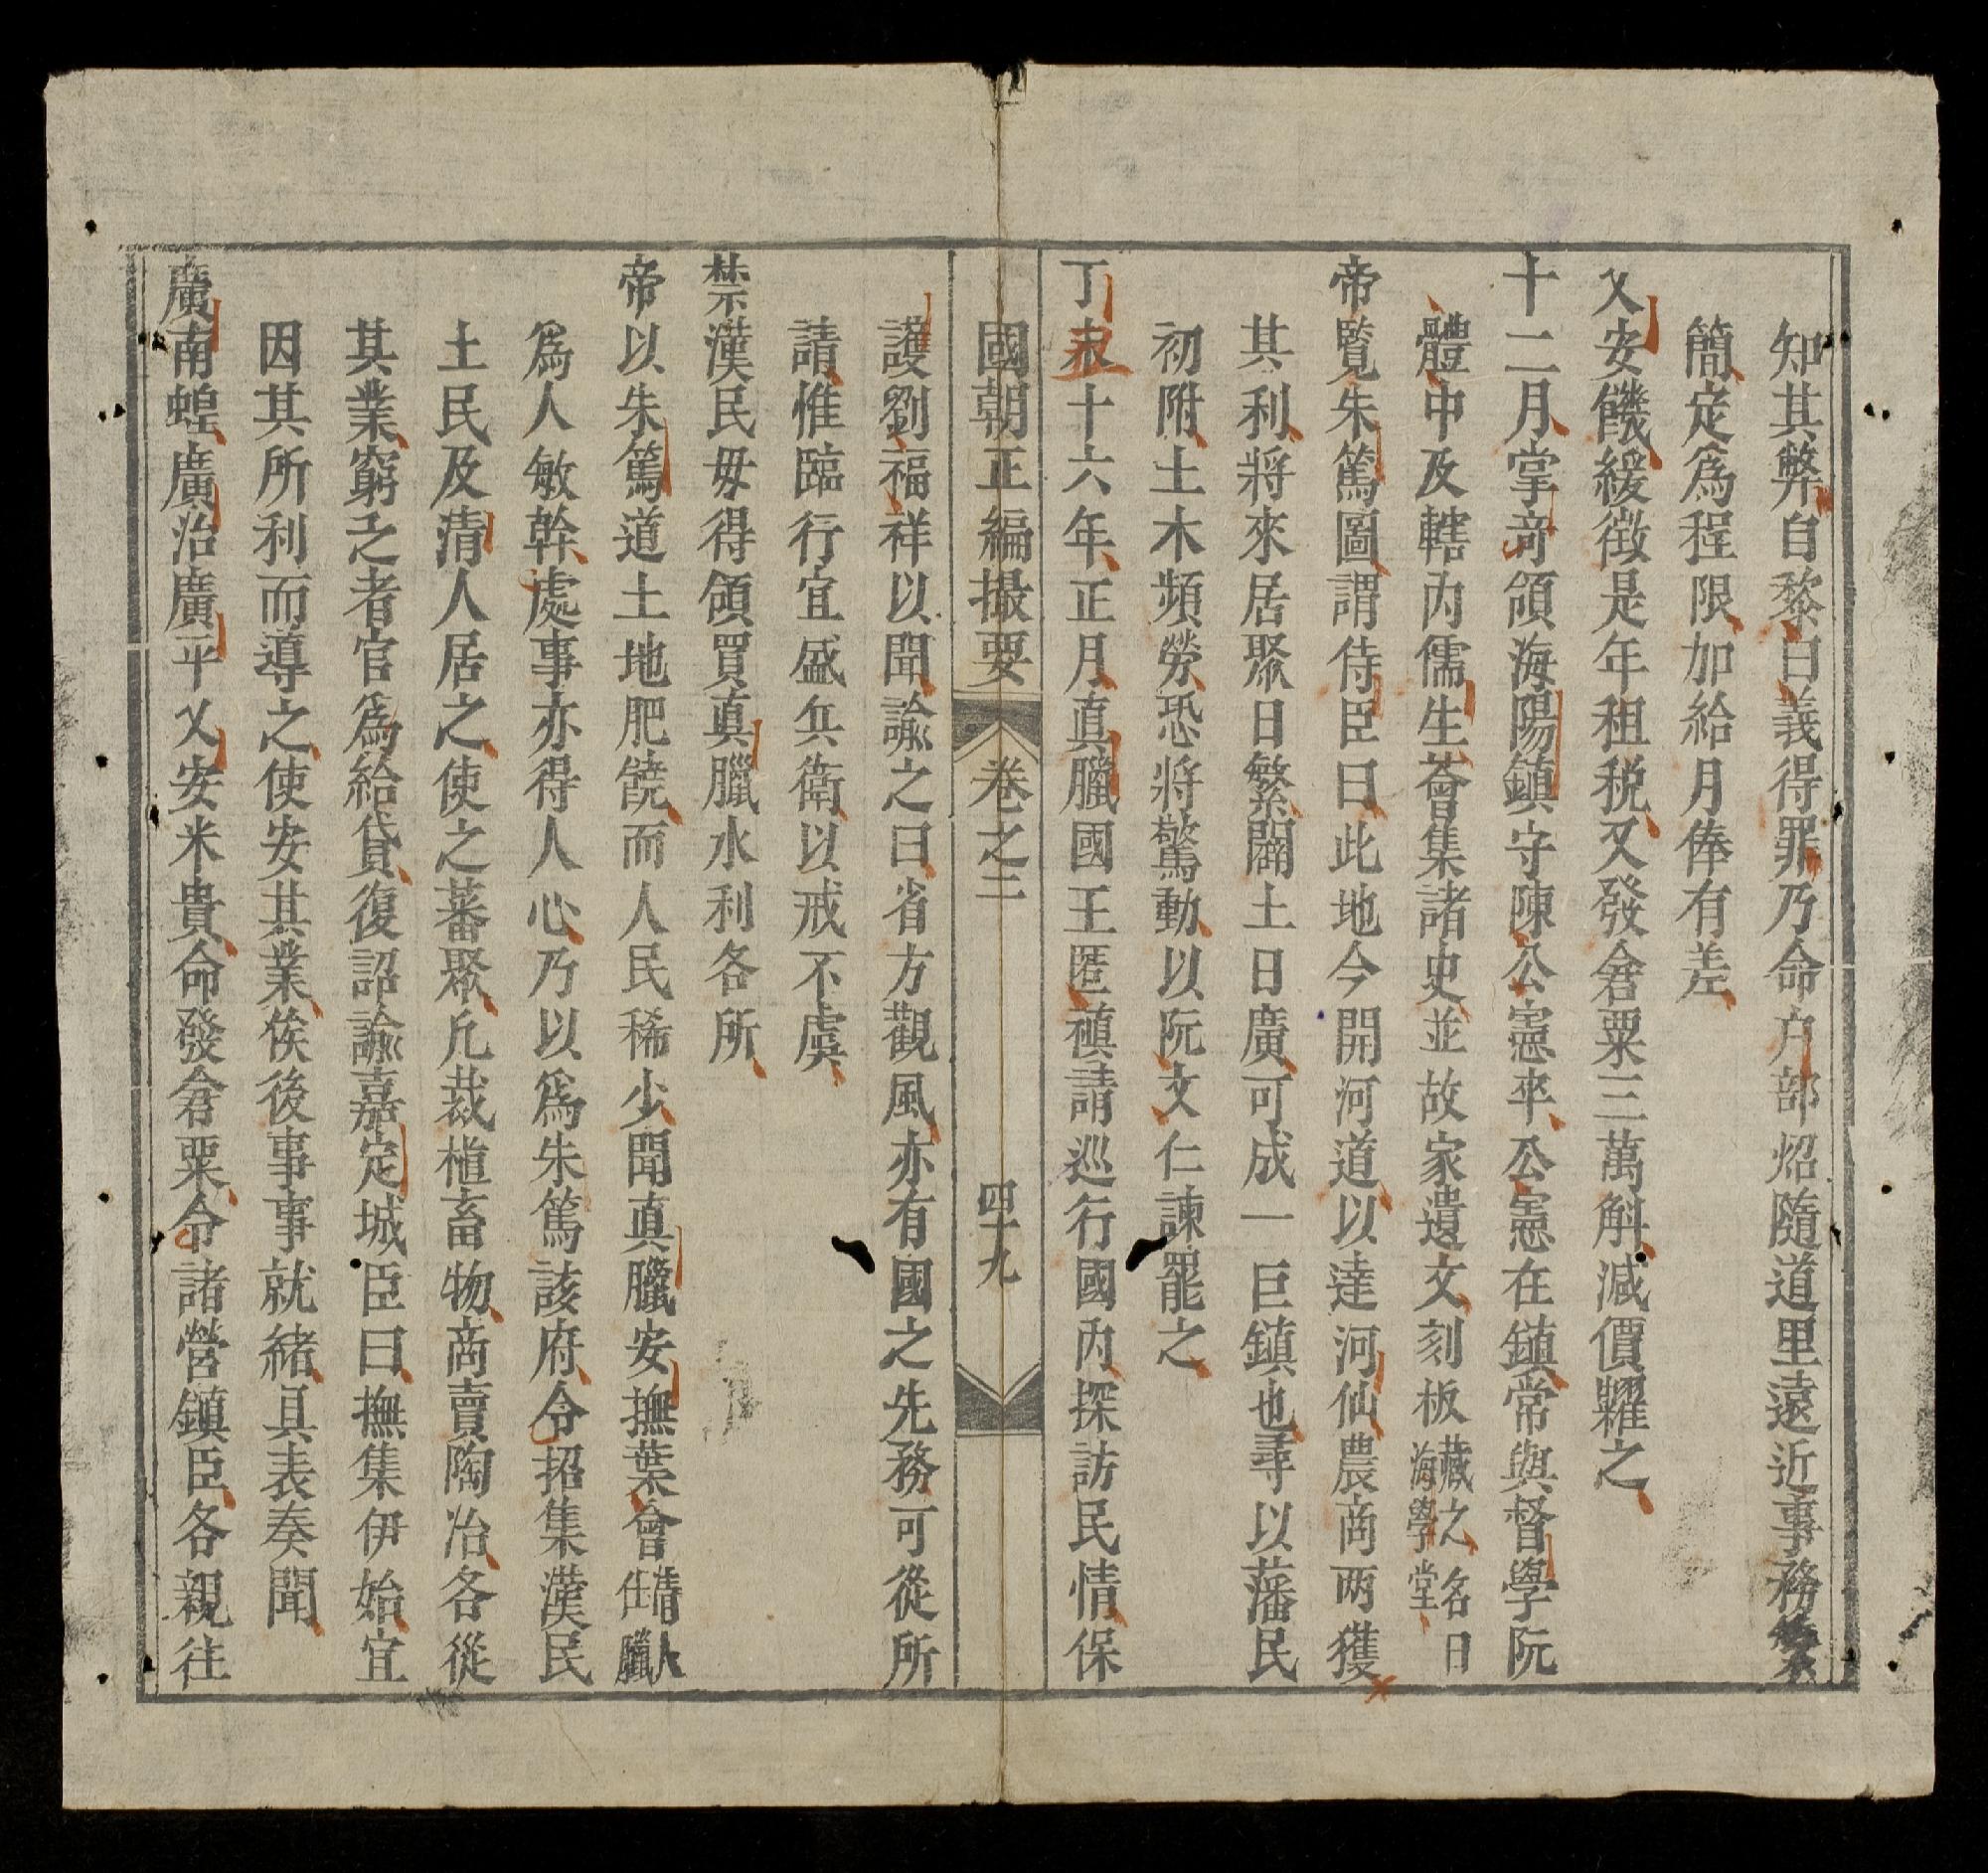 知其弊自黎曰義得罪乃命户部炤隨道里遠近事務繁
簡定爲程限加給月俸有差
乂安饑緩徴是年租税又發倉粟三萬斛减價糶之
十二月掌竒領海陽鎮守陳公憲卒公憲在鎮常與督學阮
體中及轄内儒生薈集諸史並故家遺文刻板藏之名曰海學堂
帝覧朱篤圖謂侍臣曰此地今開河道以達河仙農商两獲
其利將來居聚日繁闢土日廣可成一巨鎮也尋以藩民
初附土木頻勞恐將驚動以阮文仁諫罷之
丁未十六年正月真臘國王匿禛請巡行國内探訪民情保
國朝正編撮要 卷之三 四十九
護劉福祥以聞諭之曰省方觀風亦有國之先務可從所
請惟臨行宜盛兵衛以戒不虞
禁漢民毋得領買真臘水利各所
帝以朱篤道土地肥饒而人民稀少聞真臘安撫葉會清人仕臘
爲人敏幹處事亦得人心乃以爲朱篤該府令招集漢民
土民及清人居之使之蕃聚凡栽植畜物商賣陶冶各從
其業窮乏者官爲給貸復詔諭嘉定城臣曰撫集伊始宜
因其所利而導之使安其業俟後事事就緒具表奏聞
廣南蝗廣治廣平乂安米貴命發倉粟令諸營鎮臣各親往